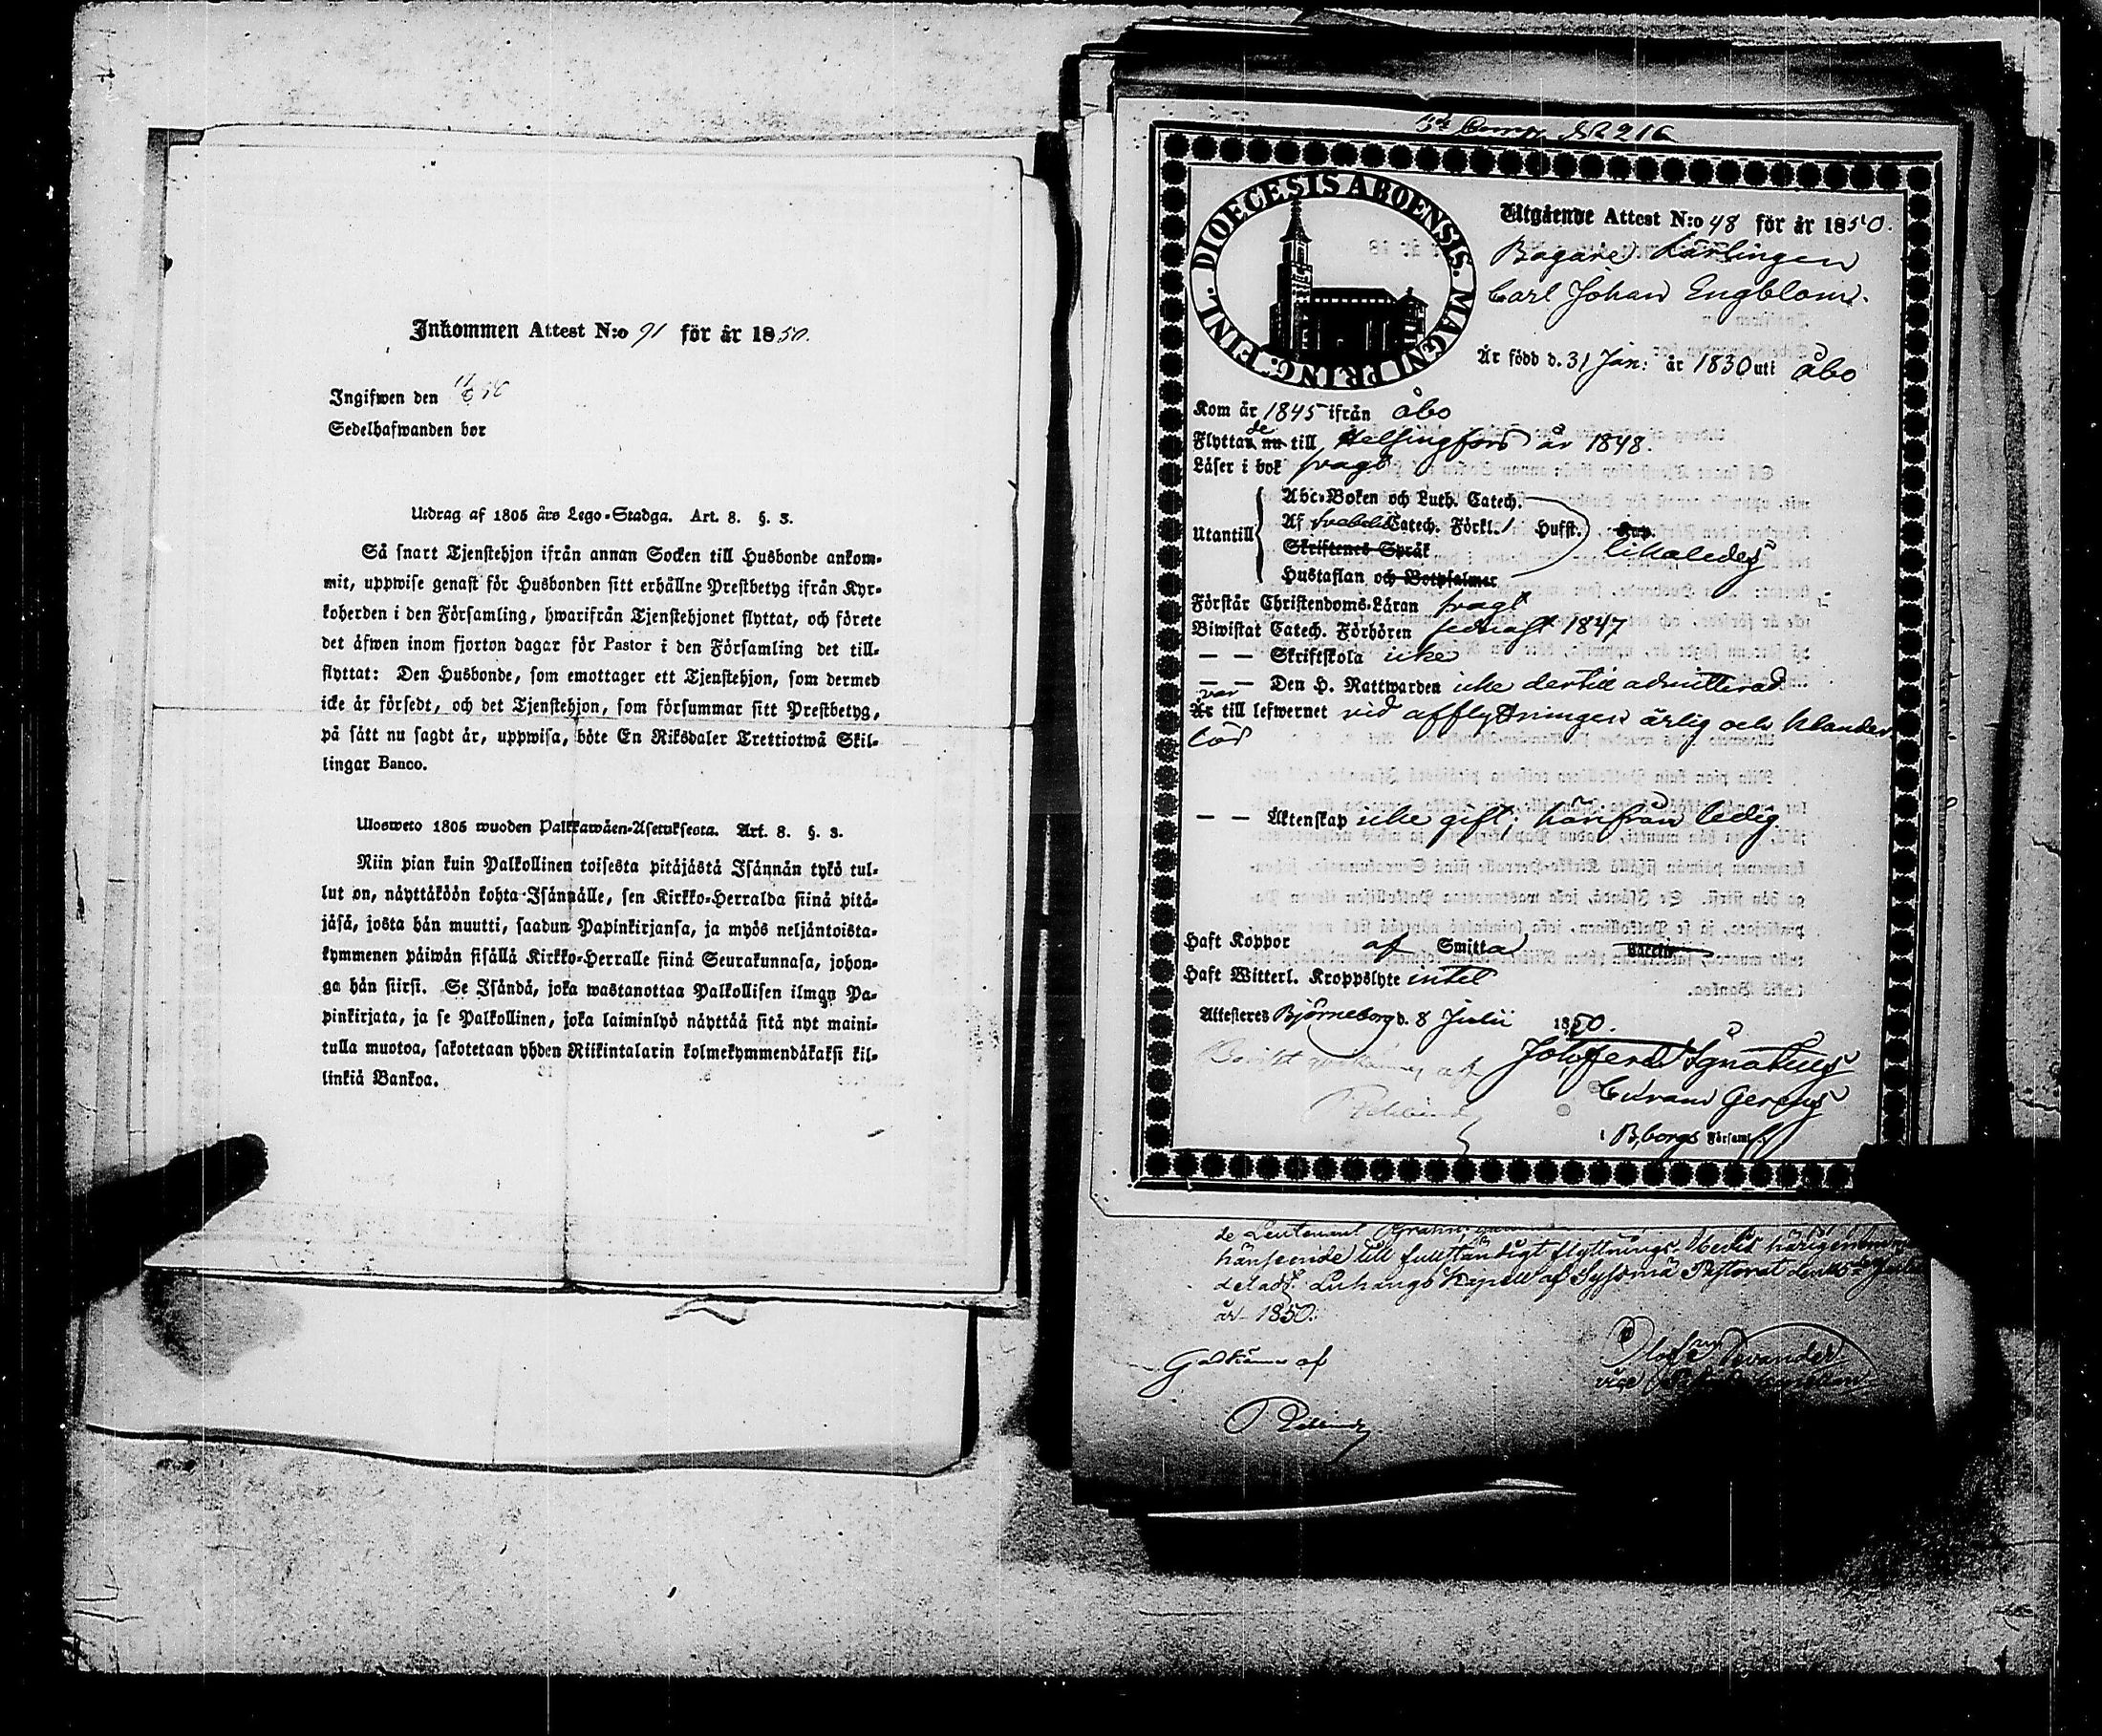 Inkommen Attest N:o 91 för år 1850.
Ingifwen den
Sedelhafwanden bor
Utdrag af 1805 års Lego-Stadga. Art. 8. §. 3.
Så snart Tjenstehjon ifrån annan Socken till Husbonde ankom-
mit, uppwise genast för Husbonden sitt erhållne Prestbetyg ifrån Kyr-
koherden i den Församling, hwarifrån Tjenstehjonet flyttat, och förete
det äfwen inom fjorton dagar för Pastor i den Församling det till-
flyttat: Den Husbonde, som emottager ett Tjenstehjon, som dermed
icke är försedt, och det Tjenstehjon, som försummar sitt Prestbetyg,
på sätt nu sagdt är, uppwisa, böte En Riksdaler Trettiotwå Skil-
lingar Banco.
Ulosweto 1805 wuoden Palkkawäen-Asetuksesta. Art. 8. §. 3.
Niin pian kuin Palkollinen toisesta pitäjästä Isännän tykö tul-
lut on, näyttäköön kohta Isännälle, sen Kirkko-Herralda siinä pitä-
jäsä, josta hän muutti, saadun Papinkirjansa, ja myös neljäntoista-
kymmenen päiwän sisällä Kirkko-Herralle siinä Seurakunnasa, johon-
ga hän siirsi. Se Isändä, joka wastanottaa Palkollisen ilman Pa-
pinkirjata, ja se Palkollinen, joka laiminlyö näyttää sitä nyt maini-
tulla muotoa, sakotetaan yhden Riikintalarin kolmekymmendäkaksi kil-
linkiä Bankoa.
N 216
DIOECESIS ABOENSIS. MAGNI PRING. FINL.
Utgående Attest N:o 48 för år 1850.
Bagare Lärlingen
Carl Johan Engblom.
Är född d. 31 Jan: år 1830 uti Åbo
Kom år 1845 ifrån Åbo
Flyttande nu till Helsingfors år 1848.
Läser i bok svagt
Utantill
Abc-Boken och Luth. Catech.
Af Svebelii Catech. Förkl. 1 Hufst.
Skriftenes Språk
likaledes
Hustaflan och Botpsalmer
Förstår Christendoms-Läran svagt
Biwistat Catech. Förhören sednast 1847
— — Skriftskola icke
— — Den H. Nattwarden icke dertill admitterad
var
Är till lefwernet vid afflyttningen ärlig och klander
lös
— — Äktenskap icke gift; härifrån ledig.
Haft Koppor af Smitta
Haft Witterl. Kroppslyte intet
Attesteres Björneborg d. 8 Julii 1850.
Joh. Ferd. Ignatius
Curam Gerens
i B,borgs Församl.
de Leutenant
hänseende till fullständigt flyttnings-
Luhango Kapell af Sysmä Pastorat
år 1850.
Godkännes af